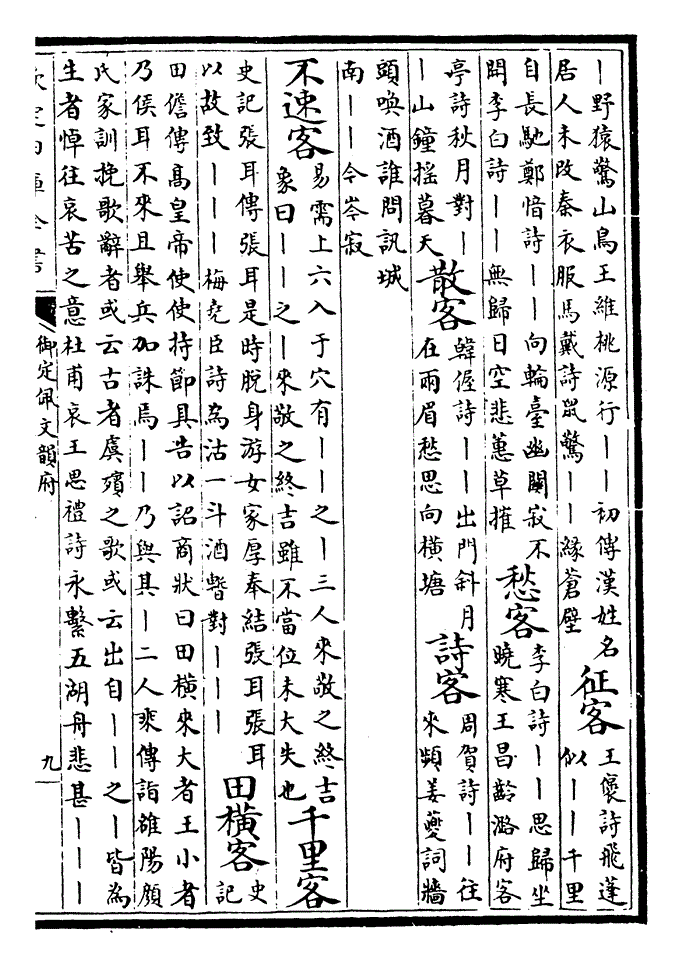 ｜野猿驚山鳥王維桃源行｜｜初傳漢姓名
居人未改秦衣服馬戴詩鼠驚｜｜緣蒼壁
征客
王褒詩飛蓬
似｜｜千里
自長馳鄭愔詩｜｜向輪臺幽闗寂不
開李白詩｜｜無歸日空悲蕙草摧
愁客
李白詩｜｜思歸坐
曉寒王昌齡潞府客
亭詩秋月對｜
｜山鐘揺暮天
散客
韓偓詩｜｜出門斜月
在兩眉愁思向橫塘
詩客
周賀詩｜｜往
來頻姜夔詞牆
頭喚酒誰問訊城
南｜｜今岑寂
不速客
易需上六入于穴有｜｜之｜三人來敬之終吉
象曰｜｜之｜來敬之終吉雖不當位未大失也
千里客
史記張耳傳張耳是時脱身游女家厚奉結張耳張耳
以故致｜｜｜梅堯臣詩為沽一斗酒暫對｜｜｜
田橫客
史
記
田儋傳髙皇帝使使持節具告以詔商狀曰田橫來大者王小者
乃侯耳不來且舉兵加誅焉｜｜乃與其｜二人乘傳詣雒陽顔
氏家訓挽歌辭者或云古者虞殯之歌或云出自｜｜之｜皆為
生者悼往哀苦之意杜甫哀王思禮詩永繫五湖舟悲甚｜｜｜
欽定四庫全書
御定佩文韻府
九